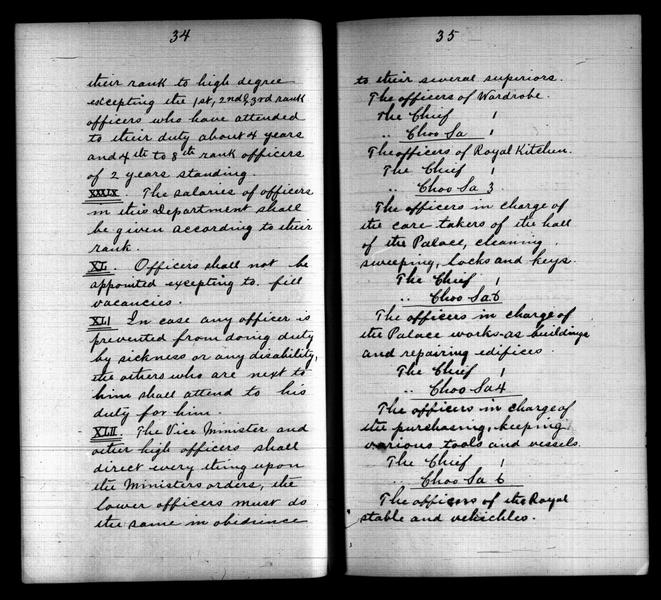 34
their rank to high degree
excepting the 1st, 2nd & 3rd rank
officers who have attended
to their duty about 4 years
and 4th to 8th rank officers
of 2 years standing.
XXXIX. The salaries of officers
in this Department shall
be given according to their
rank.
XL. Officers shall not be
appointed excepting to fill
vacancies.
XLI In case any officer is
prevented from doing duty
by sickness or any disability,
the others who are next to
him shall attend to his
duty for him.
XLII. The Vice Minister and
other high officers shall
direct every thing upon
the Ministers orders, the
lower officers must do
the same in obedience
35
to their several superiors.
The officers of Wardrobe.
The Chief 1
" Choo Sa 1
The officers of Royal Kitchen.
The Chief 1
" Choo Sa 3.
The officers in charge of
the care takers of the hall
of the Palace, cleaning,
sweeping, locks and keys.
The Chief 1
" Choo Sa 6
The officers in charge of
the Palace works-as buildings
and repairing edifices.
The Chief 1
" Choo Sa 4
The officers in charge of
the purchasing, keeping
various tools and vessels.
The Chief 1
" Choo Sa 6
The officers of the Royal
stable and vehichles.